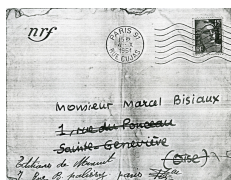 nrf
PARIS V
R. CUJAS
Monsieur Marcel Bisiaux
1 rue du Ponceau
Sainte-Geneviève
(Oise)
Editions de Minuit
7 Rue B. Palissy Paris